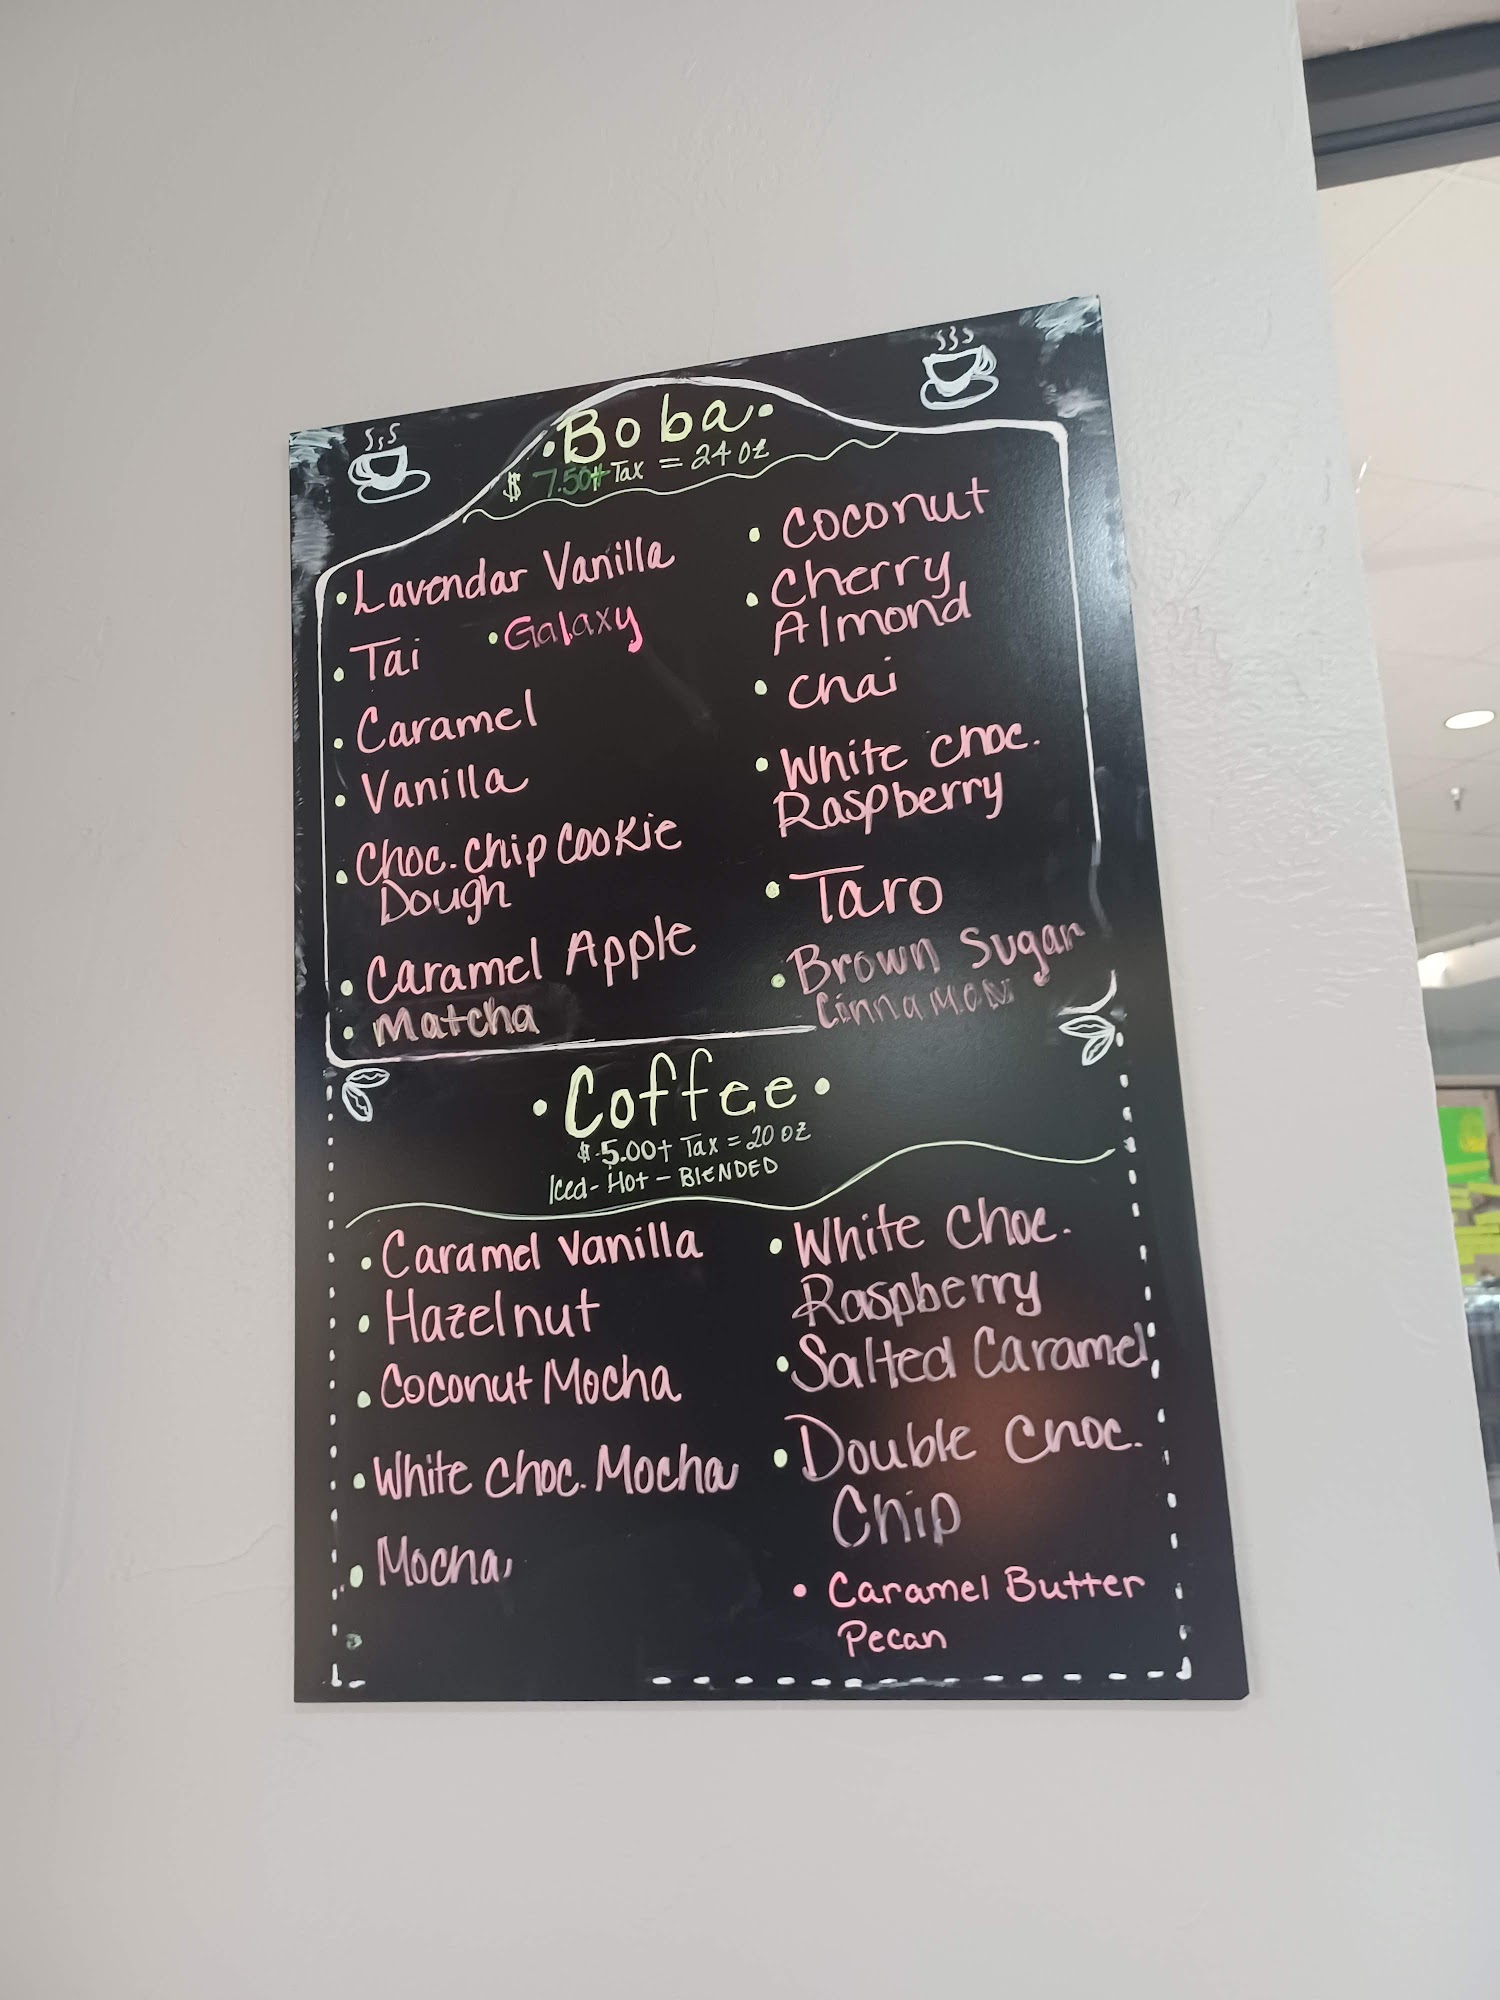 • Boba •
$ 7.50+ Tax = 24 oz
• Lavendar Vanilla
• Tai • Galaxy
• Caramel
• Vanilla
• Choc. Chip Cookie
Dough
• Caramel Apple
• Matcha
• Coconut
• Cherry
Almond
• Chai
• White Choc.
Raspberry
• Taro
• Brown Sugar
Cinnamon
• Coffee •
$ 5.00+ Tax = 20 oz
Iced - Hot - BLENDED
• Caramel Vanilla
• Hazelnut
• Coconut Mocha
• White Choc. Mocha
• Mocha
• White Choc.
Raspberry
• Salted Caramel
• Double Choc.
Chip
• Caramel Butter
Pecan